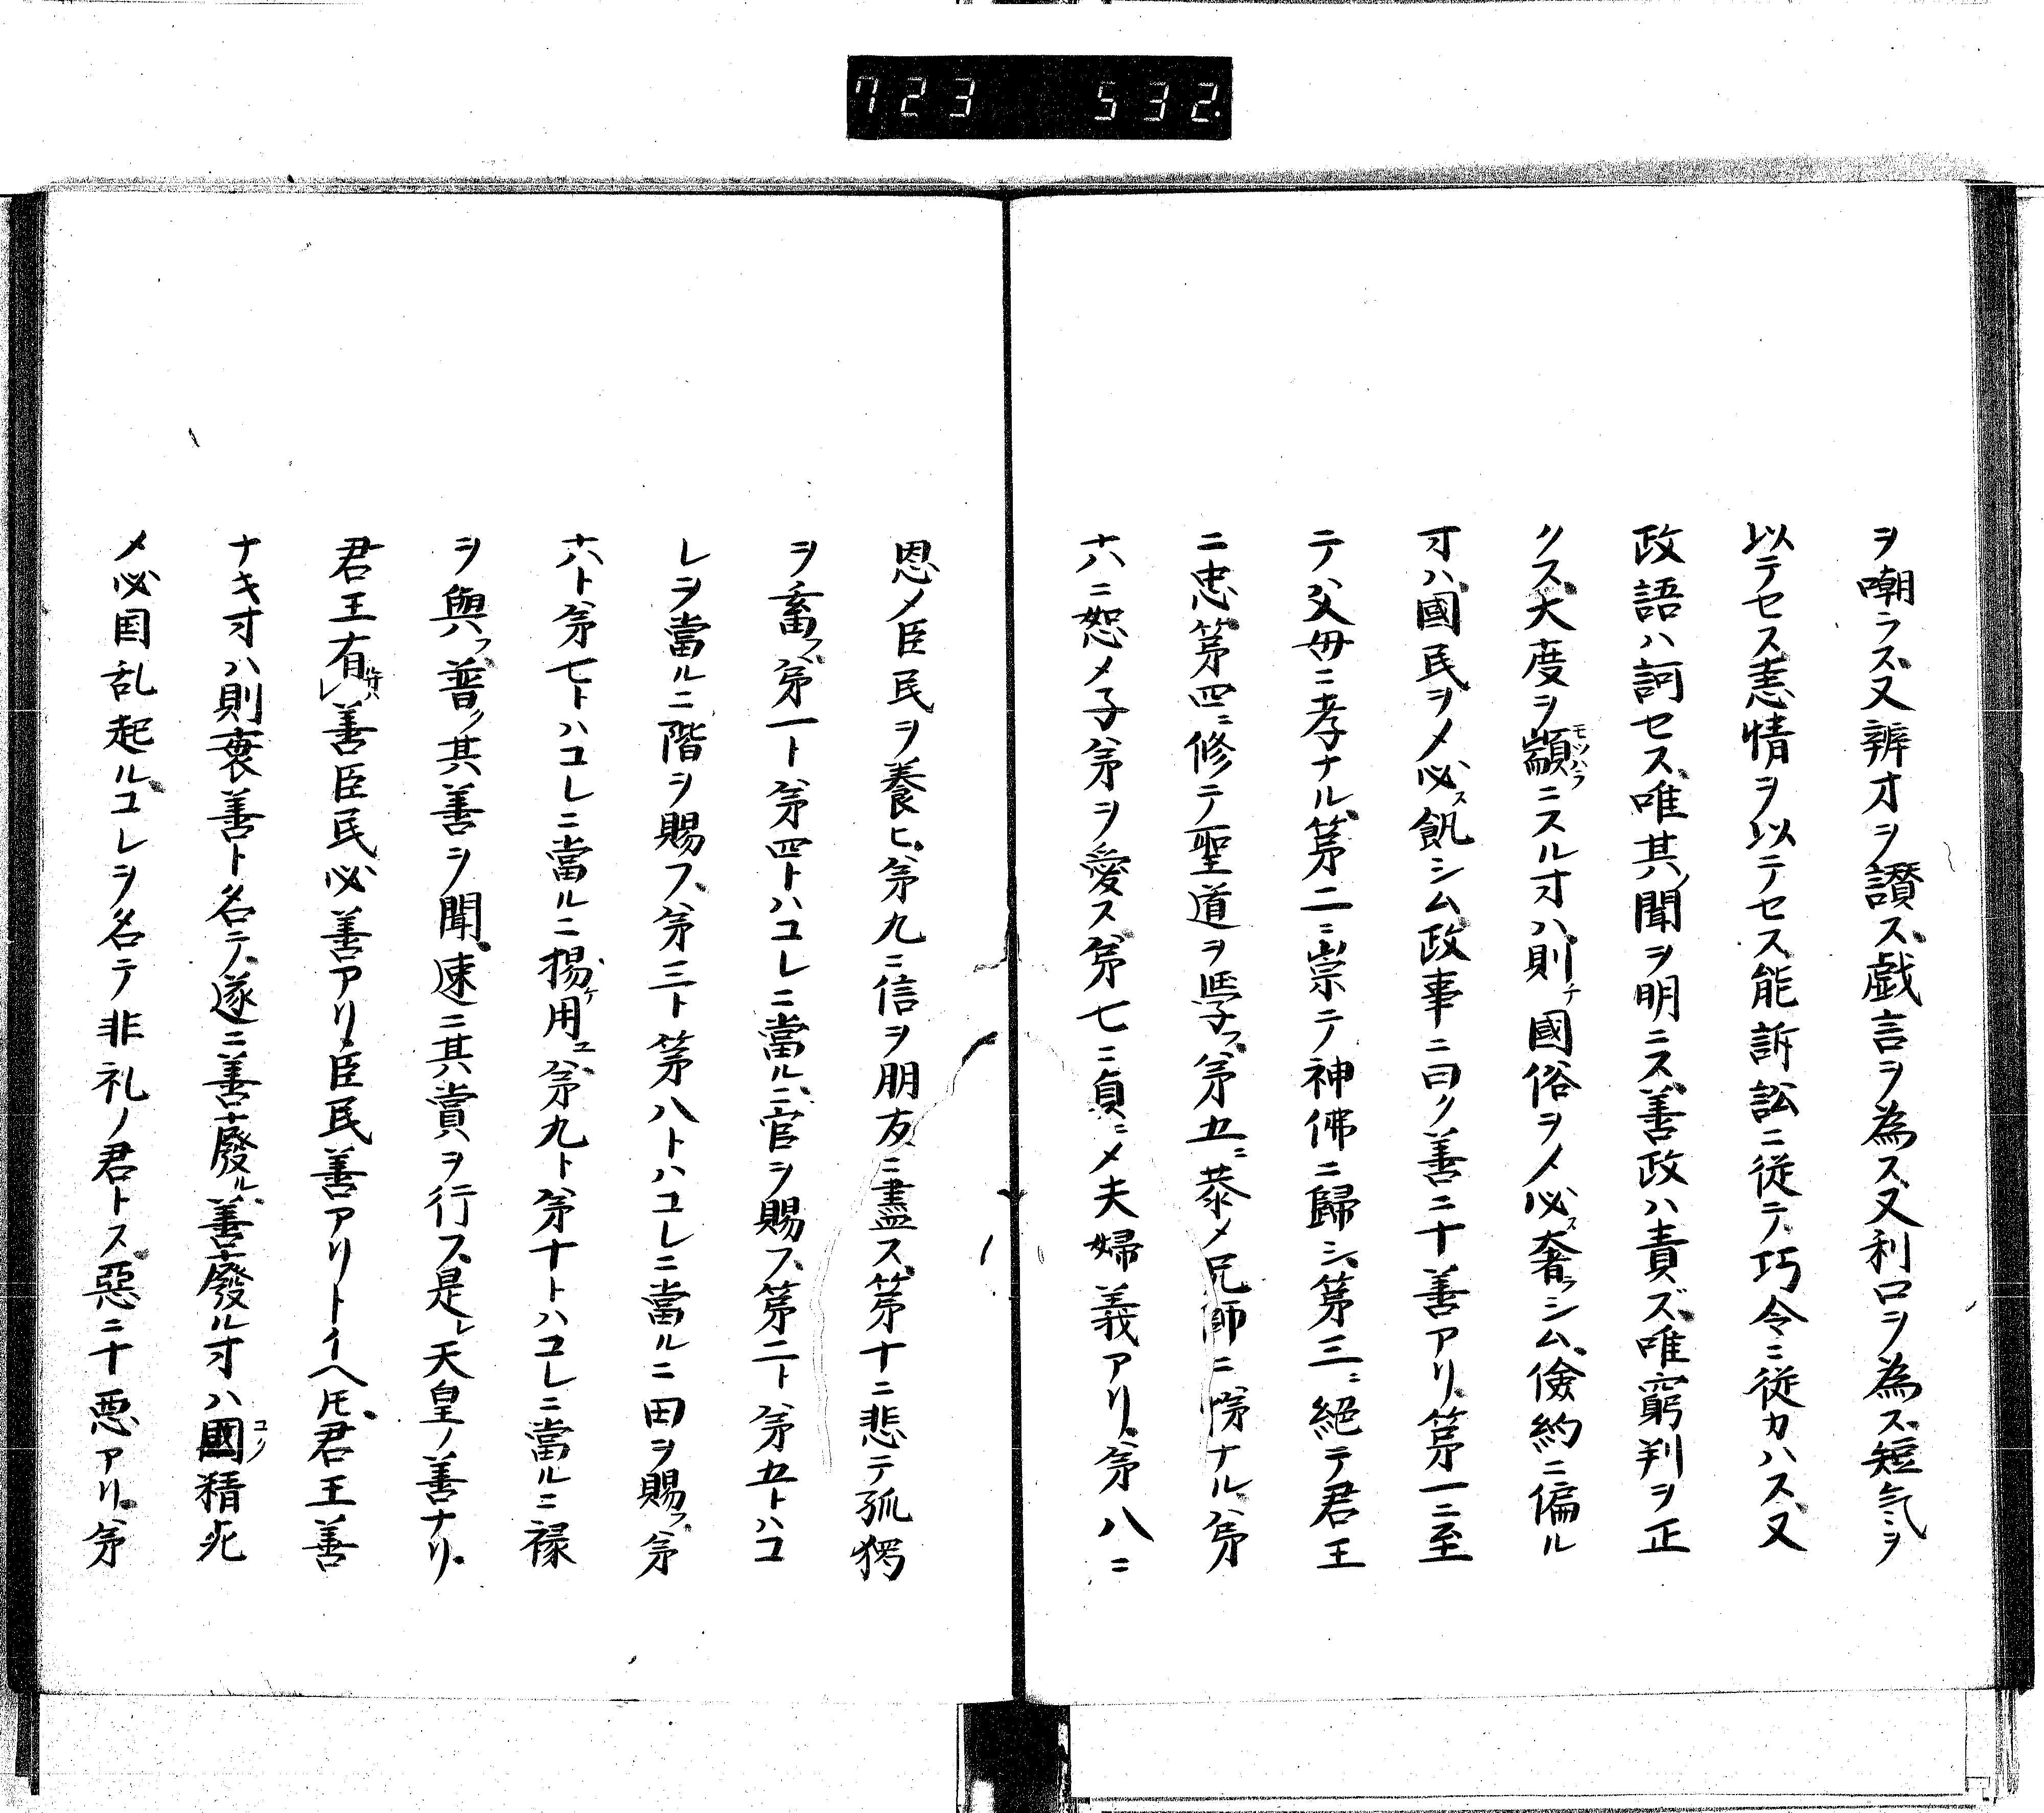 723 532.
ヲ嘲ラス又辨才ヲ讃ス戯言ヲ為ス又利口ヲ為ス短気ヲ
以テセス恚情ヲ以テセス能訴訟ニ従テ巧令ニ従カハス又
政語ハ訶セス唯其ノ聞ヲ明ニス善政ハ責ズ唯窮判ヲ正
クス大度ヲ顓モツハラニスル寸ハ則チ國俗ヲメ必ス奢ラシム儉約ニ偏ル
寸ハ國民ヲメ必ス飢シム政事ニ曰ク善ニ十善アリ第一ニ至
テ父母ニ孝ナル第二ニ崇テ神佛ニ歸シ第三ニ絕テ君王
ニ忠第四ニ修テ聖道ヲ學フ第五ニ恭メ兄師ニ悌ナル第
六ニ恕メ子弟ヲ愛ス第七ニ貞ニメ夫婦義アリ第八ニ
恩メ臣民ヲ養ヒ第九ニ信ヲ朋友ニ盡ス第十ニ悲テ孤獨
ヲ畜フ第一ト第四トハコレニ當ルニ官ヲ賜フ第二ト第五トハコ
レヲ當ルニ階ヲ賜フ第三ト第八トハコレニ當ルニ田ヲ賜フ第
六ト第七トハコレニ當ルニ揚ケ用ユ第九ト第十トハコレニ當ルニ禄
ヲ與フ普ク其善ヲ聞速ニ其賞ヲ行フ是レ天皇ノ善ナリ
君王有レ善臣民必善アリ臣民善アリトイヘ𪜈君王善
ナキ寸ハ則衰善ト名テ遂ニ善廢ル善廢ル寸ハ國精死
メ必国乱起ルコレヲ名テ非礼ノ君トス惡ニ十悪アリ第